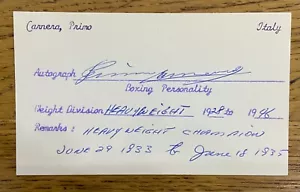 Carnera, Primo Italy
Autograph Primo Carnera
Boxing Personality
Weight Division HEAVYWEIGHT 1928 to 1946
Remarks : HEAVYWEIGHT CHAMPION
JUNE 29 1933 to June 18 1935